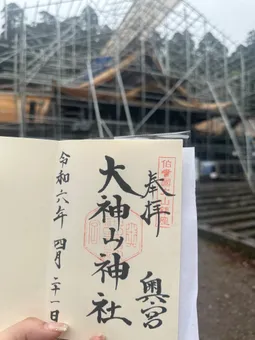 奉拝
大神山神社
奥宮
令和六年 四月二十一日